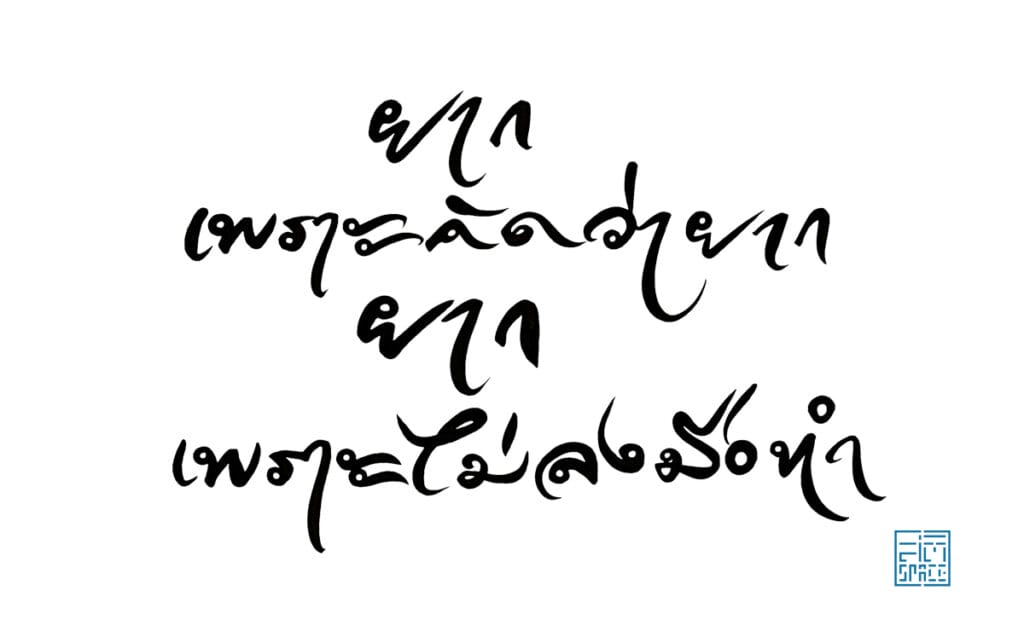 ยาก
เพราะคิดว่ายาก
ยาก
เพราะไม่ลงมือทำ
SPACE